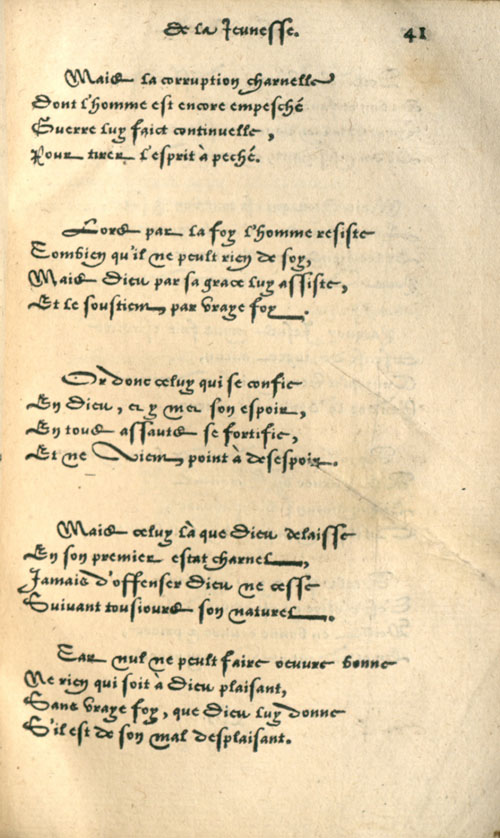 de la Jeunesse. 41
Mais la corruption charnelle
Dont l'homme est encore empesché
Guerre luy faict continuelle,
Pour tirer l'esprit à peché.
Lors par la foy l'homme resiste
Combien qu'il ne peult rien de soy,
Mais Dieu par sa grace luy assiste,
Et le soustient par vraye foy.
Or donc celuy qui se confie
En Dieu, et y met son espoir,
En tous assauts se fortifie,
Et ne vient point à desespoir.
Mais celuy là que Dieu delaisse
En son premier estat charnel,
Jamais d'offenser Dieu ne cesse
Suivant tousiours son naturel.
Car nul ne peult faire oeuvre bonne
Ne rien qui soit à Dieu plaisant,
Sans vraye foy, que Dieu luy donne
S'il est de son mal desplaisant.